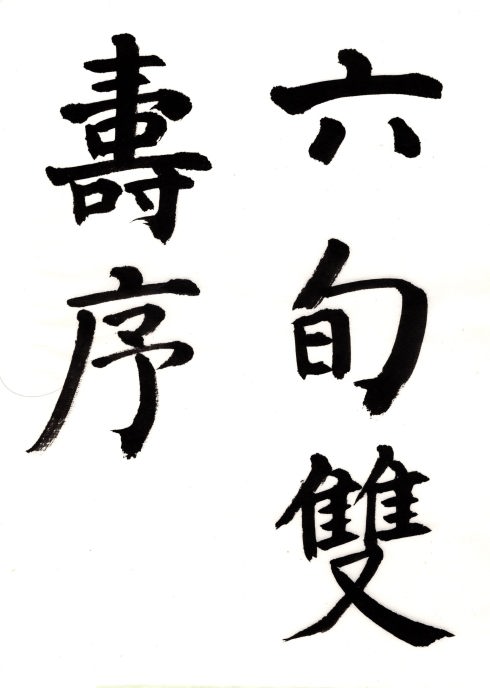 六旬雙
壽序